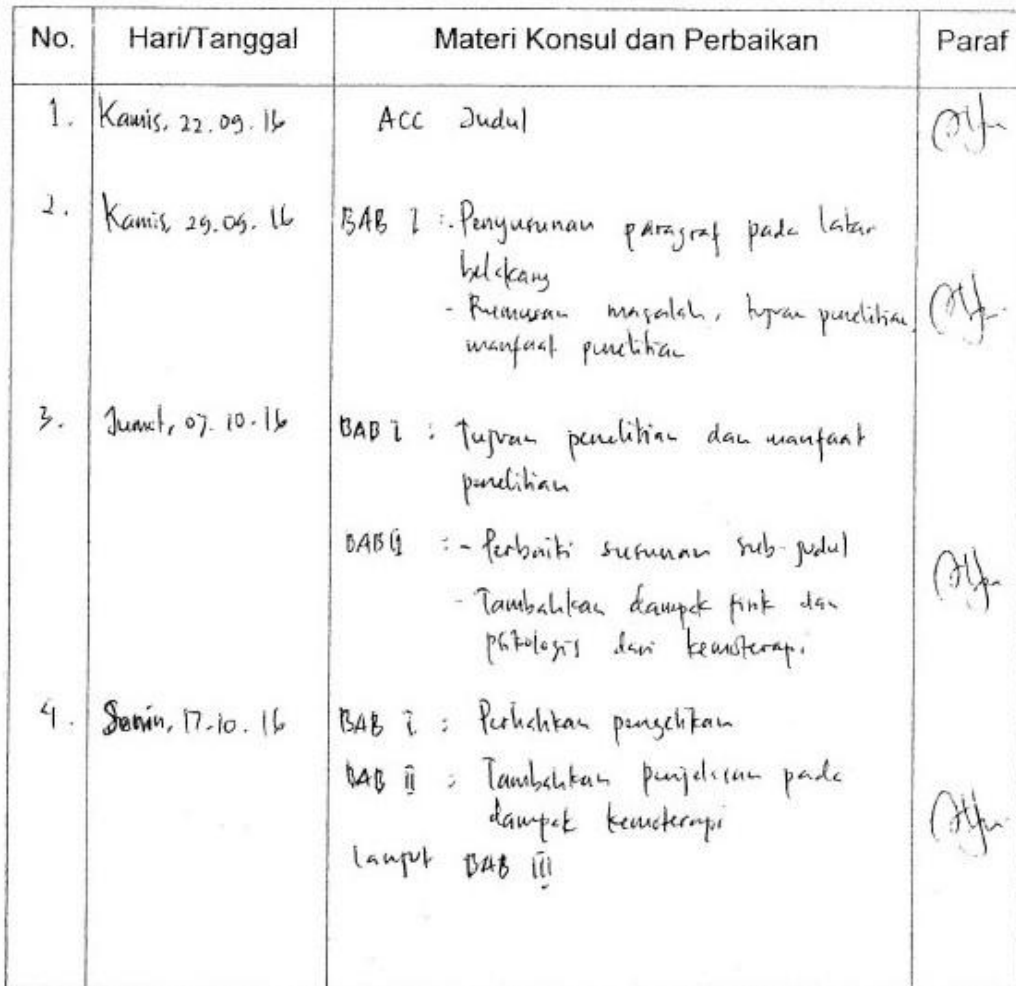 No. Hari/Tanggal Materi Konsul dan Perbaikan Paraf
1. Kamis, 22.09.16 ACC Judul
2. Kamis, 29.09.16 BAB I :- Penyusunan paragraf pada latar
belakang
- Rumusan masalah, tujuan penelitian,
manfaat penelitian
3. Jumat, 07.10.16 BAB I : Tujuan penelitian dan manfaat
penelitian
BAB II :- Perbaiki susunan sub-judul
- Tambahkan dampak fisik dan
psikologis dari kemoterapi.
4. Senin, 17.10.16 BAB I : Perhatikan pengetikan
BAB II : Tambahkan penjelasan pada
dampak kemoterapi
lanjut BAB III